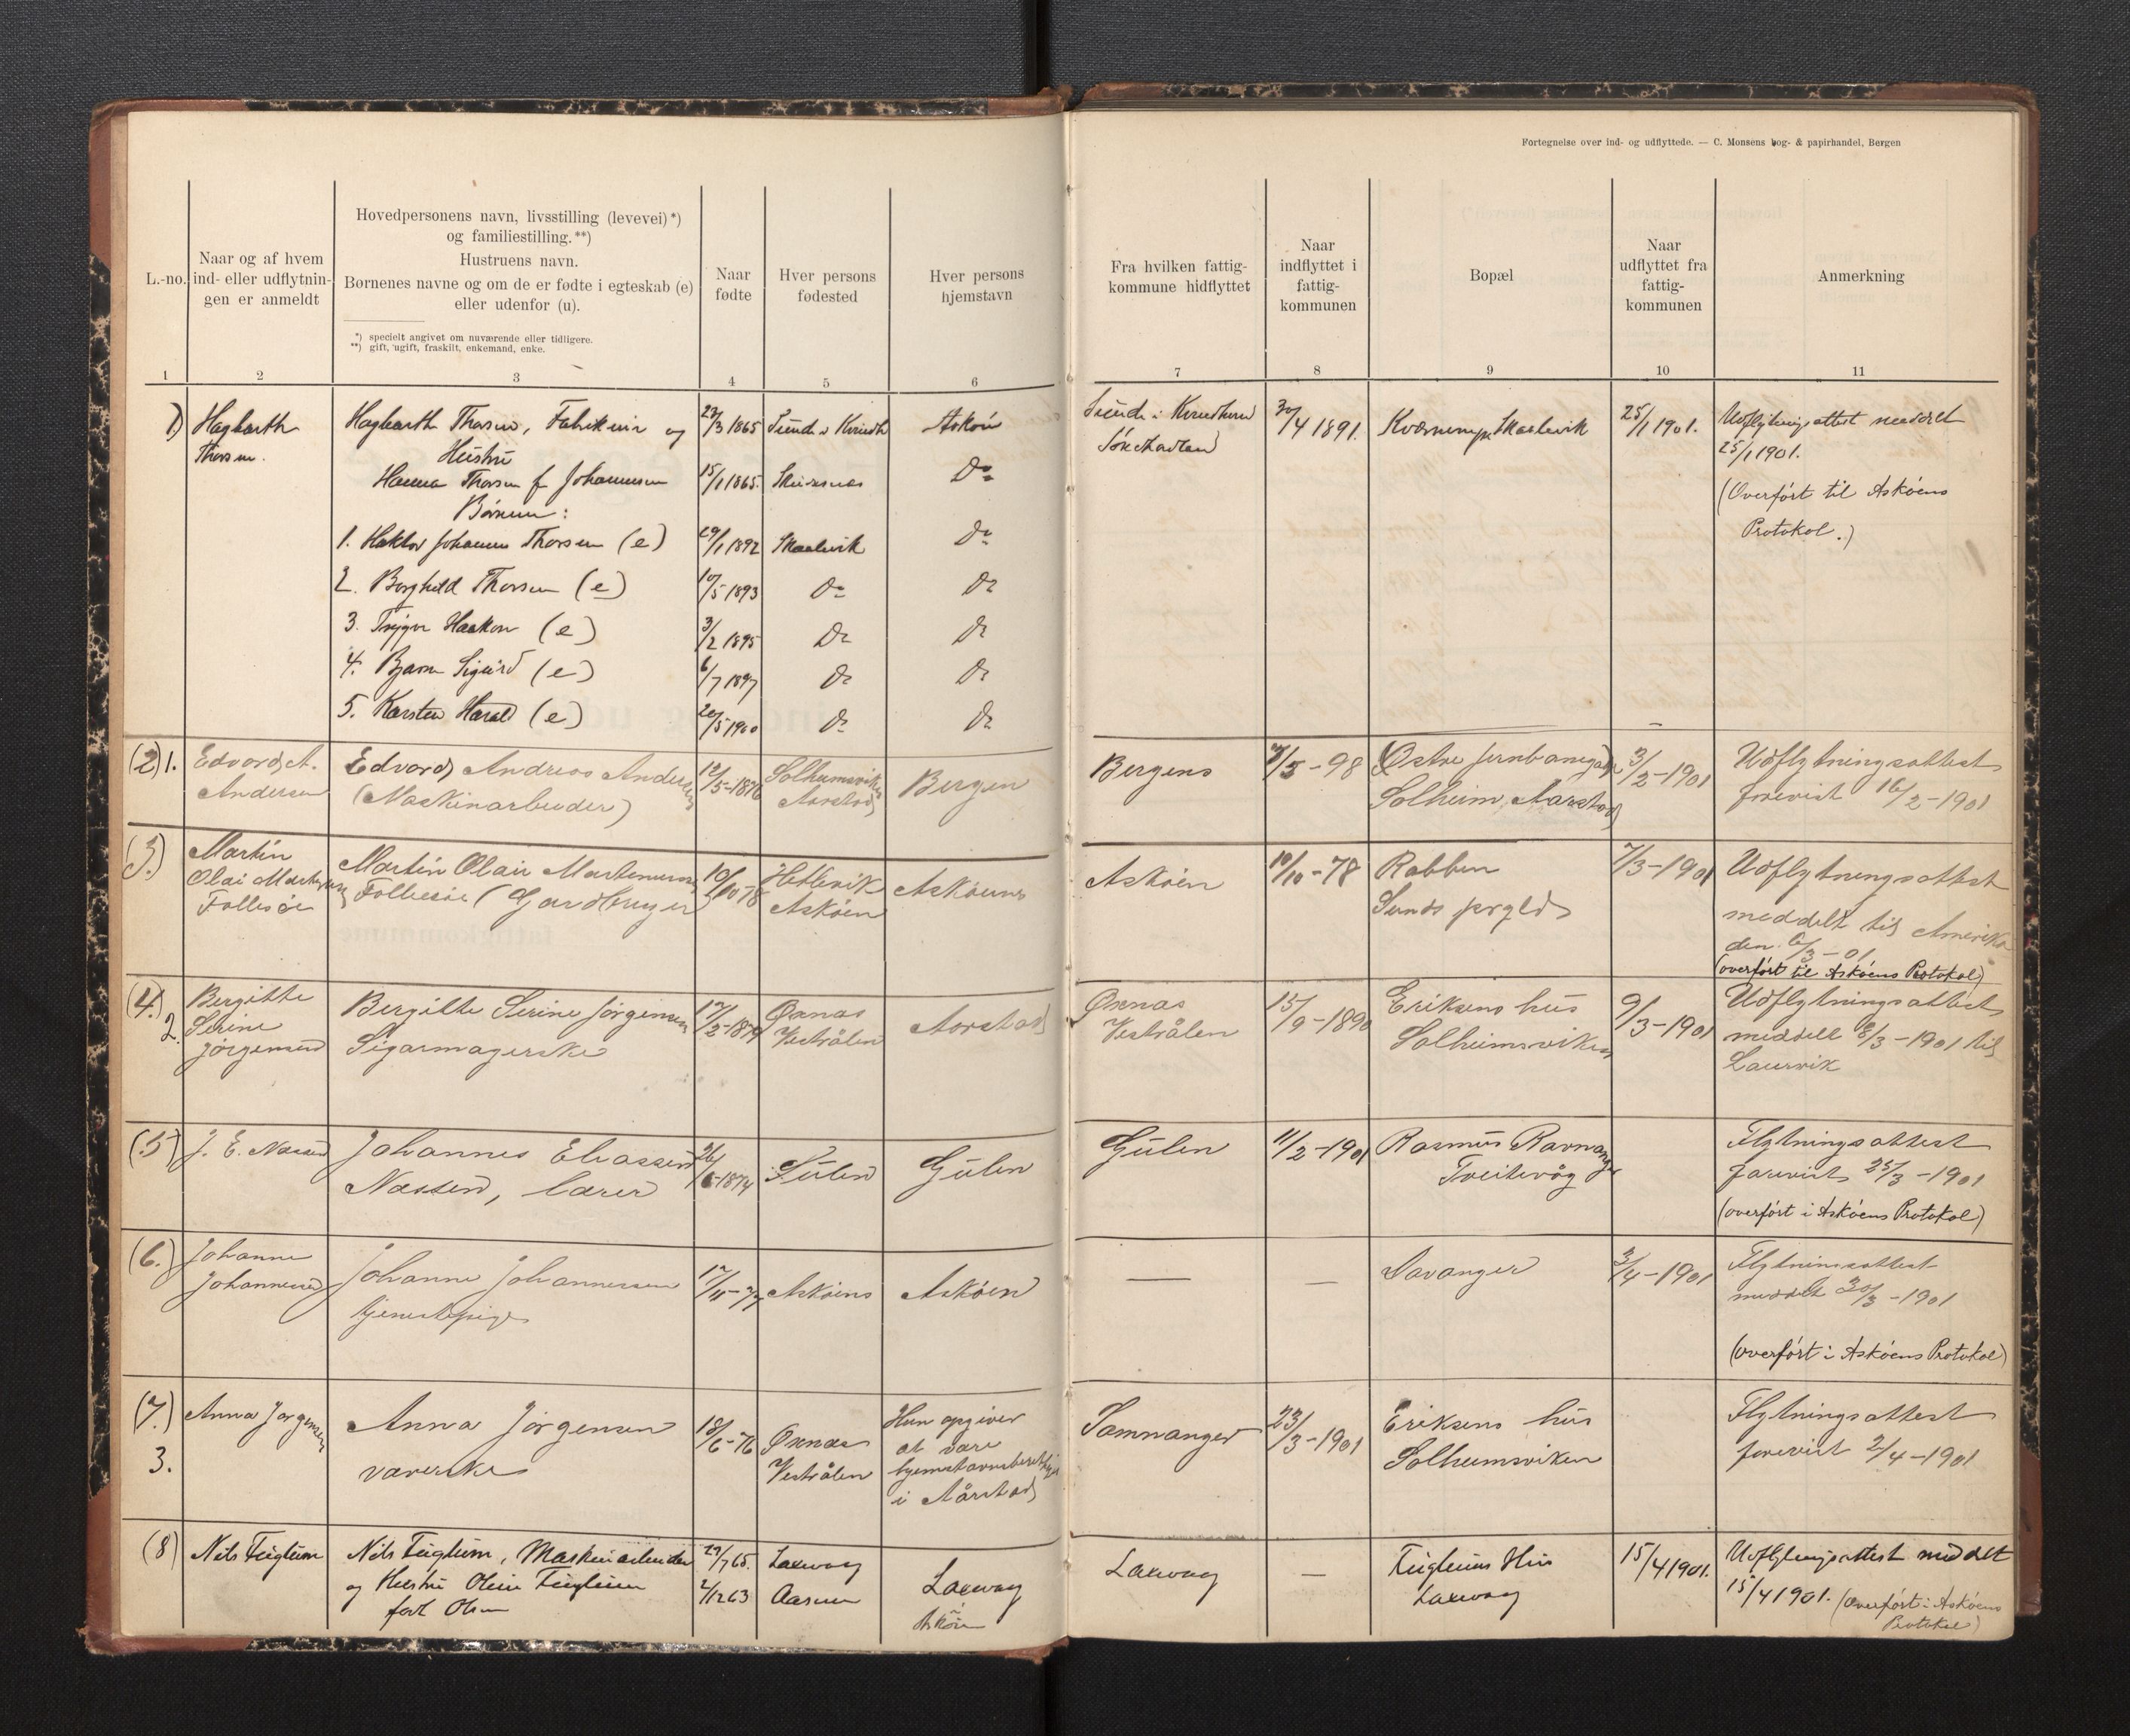 Fortegnelse over ind- og udflyttede. — C. Monsens bog- & papirhandel, Bergen
L.-no.
Naar og af hvem
ind- eller udflytnin-
gen er anmeldt
Hovedpersonens navn, livsstilling (levevei)*)
og familiestilling.**)
Hustruens navn.
Børnenes navne og om de er fødte i egteskab (e)
eller udenfor (u).
*) specielt angivet om nuværende eller tidligere.
**) gift, ugift, fraskilt, enkemand, enke.
Naar
fødte
Hver persons
fødested
Hver persons
hjemstavn
Fra hvilken fattig-
kommune hidflyttet
Naar
indflyttet i
fattig-
kommunen
Bopæl
Naar
udflyttet fra
fattig-
kommunen
Anmerkning
1 2 3 4 5 6 7 8 9 10 11
1)
Hagbarth
Thorsen.
Hagbarth Thorsen, og
Hustru
Hanna Thorsen f. Johannesen
Børnene:
1. Johannes Thorsen (e)
2. Borghild Thorsen (e)
3. Trygve Haakon (e)
4. Bjarne Sigurd (e)
5. Karsten Harald (e)
23/3 1865
15/1 1865.
29/1 1892
10/5 1893
3/2 1895
6/7 1897
20/5 1900
Skaalevik
Do
Do
Do
Do
Askøen
Do
Do
Do
Do
Do
Do
30/4 1891.
Skaalevik
25/1 1901.
Udflytningsattest meddelt
25/1 1901.
(Overført til Askøens
Protokol.)
(2) 1.
Edvard A.
Andersen
Edvard Andreas Andersen
(Maskinarbeider)
12/5-1876
Solheimsviken
Aarstad
Bergen
Bergens
7/5-98
Østre Jernbanegade
Solheim, Aarstad
3/2-1901
Udflytningsattest
forevist 16/2-1901
(3.)
Martin
Olai Martinussen
Follesøe
Martin Olai Martinussen
Follesøe (Gardbruger)
10/10 78
Hetlevik
Askøen
Askøens
Askøen
10/10-78
Rabben
Sunds
7/3-1901
Udflytningsattest
meddelt til Amerika
den 6/3-01
(overført til Askøens Protokol)
(4.)
2.
Bergitte
Serine
Jørgensen
Bergitte Serine Jørgensen
Sigarmagerske
17/2-1879
Øxnæs
Vestrålen
Aarstad
Øxnæs
Vestrålen
15/9-1890
Eriksens hus
Solheimsviken
9/3-1901
Udflytningsattest
meddelt 8/3-1901 til
Laurvik
(5)
J. E. Nassen
Johannes Eliassen
Nassen, lærer
26/6-1874
Gulen
Gulen
11/2-1901
Rasmus Ravnanger
Tveitevåg
Flytningsattest
forevist 25/3-1901
(overført i Askøens Protokol)
(6.)
Johanne
Johannesen
Johanne Johannessen
tjenestepige
17/11-77
Askøens
Askøen
—
—
Davanger
3/4-1901
Flytningsattest
meddelt 30/3-1901
(overført i Askøens Protokol)
(7.)
3.
Anna Jørgensen
Anna Jørgensen
væverske
18/6-76
Øxnæs
Vestrålen
Hun opgiver
at være
hjemstavnsberettiget
i Aarstad
Samnanger
23/3-1901
Eriksens hus
Solheimsviken
Flytningsattest
forevist 2/4-1901
(8)
Nils Teiglum
Nils Teiglum, Maskinarbeider
og Hustru Oline Teiglum
født Olsen
29/7 65.
2/12 63
Laxevaag
Laxevaag
Askøen
Laxevaag
—
Teiglums Hus
Laxevaag
15/4 1901.
Udflytningsattest meddelt
15/4 1901. (Overført i Askøens
Protokol)